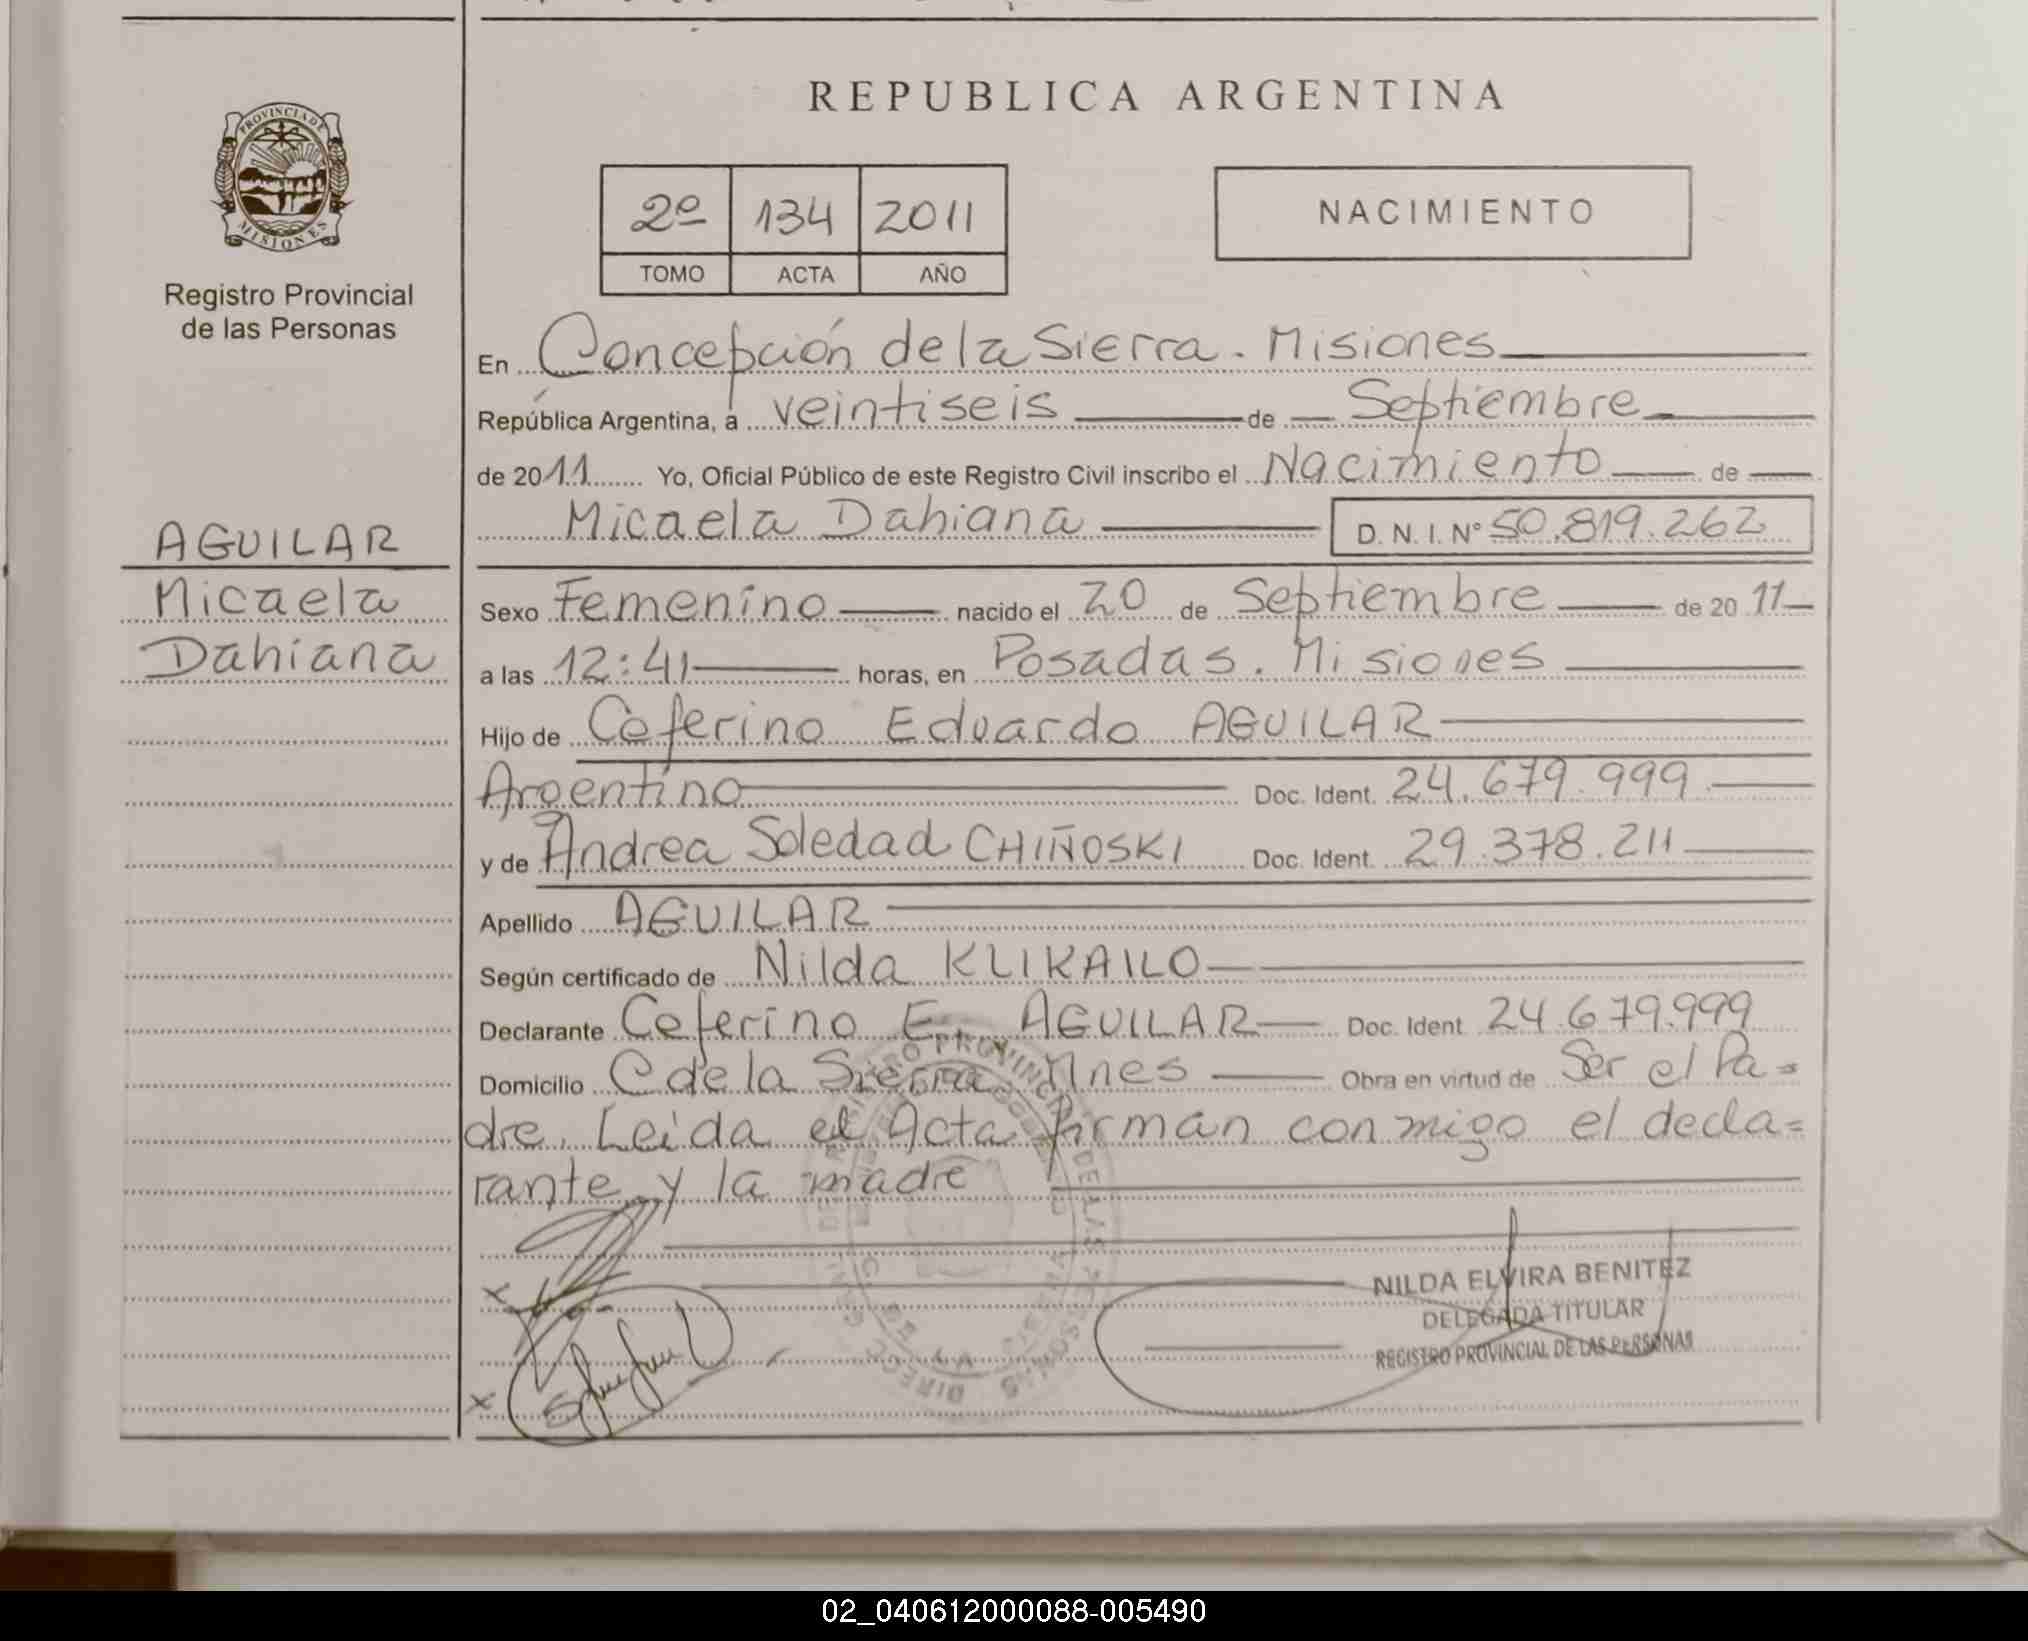 REPUBLICA ARGENTINA
PROVINCIA DE
MISIONES
Registro Provincial
de las Personas
2º 134 2011
TOMO ACTA AÑO
NACIMIENTO
AGUILAR
Micaela
Dahiana
En Concepción de la Sierra. Misiones
República Argentina, a veintiseis de Septiembre
de 2011 Yo, Oficial Público de este Registro Civil inscribo el Nacimiento de
Micaela Dahiana D. N. I. Nº 50.819.262
Sexo Femenino nacido el 20 de Septiembre de 2011
a las 12:41 horas, en Posadas. Misiones
Hijo de Ceferino Eduardo AGUILAR
Argentino Doc. Ident. 24.679.999
y de Andrea Soledad CHIÑOSKI Doc. Ident. 29.378.211
Apellido AGUILAR
Según certificado de Nilda KLIKAILO
Declarante Ceferino E. AGUILAR Doc. Ident 24.679.999
Domicilio C de la Sierra Mnes Obra en virtud de Ser el Pa=
dre. Leida el Acta firman conmigo el decla=
rante y la madre
NILDA ELVIRA BENITEZ
DELEGADA TITULAR
REGISTRO PROVINCIAL DE LAS PERSONAS
02_040612000088-005490